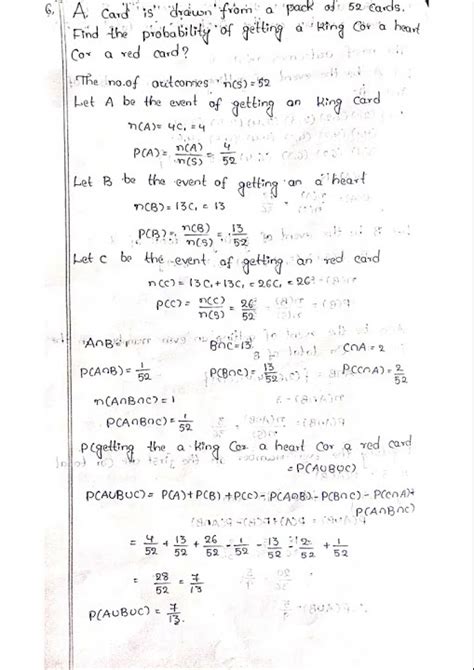 6. A card is drawn from a pack of 52 cards.
Find the probability of getting a king (or a heart
(or a red card?
The no.of outcomes n(S)=52
Let A be the event of getting an king card
n(A)= 4C₁ = 4
P(A)= n(A)/n(S) = 4/52
Let B be the event of getting an a heart
n(B)= 13C₁ = 13
P(B)= n(B)/n(S) = 13/52
Let C be the event of getting an red card
n(C)= 13C₁+13C₁ = 26C₁ = 26
P(C)= n(C)/n(S) = 26/52
A∩B=1 B∩C=13 C∩A=2
P(A∩B)= 1/52 P(B∩C)= 13/52 P(C∩A)= 2/52
n(A∩B∩C)=1
P(A∩B∩C)= 1/52
P(getting the a king (or a heart (or a red card
=P(AUBUC)
P(AUBUC)= P(A)+P(B)+P(C)-P(A∩B)-P(B∩C)-P(C∩A)+
P(A∩B∩C)
= 4/52 + 13/52 + 26/52 - 1/52 - 13/52 - 2/52 + 1/52
= 28/52 = 7/13
P(AUBUC)= 7/13.